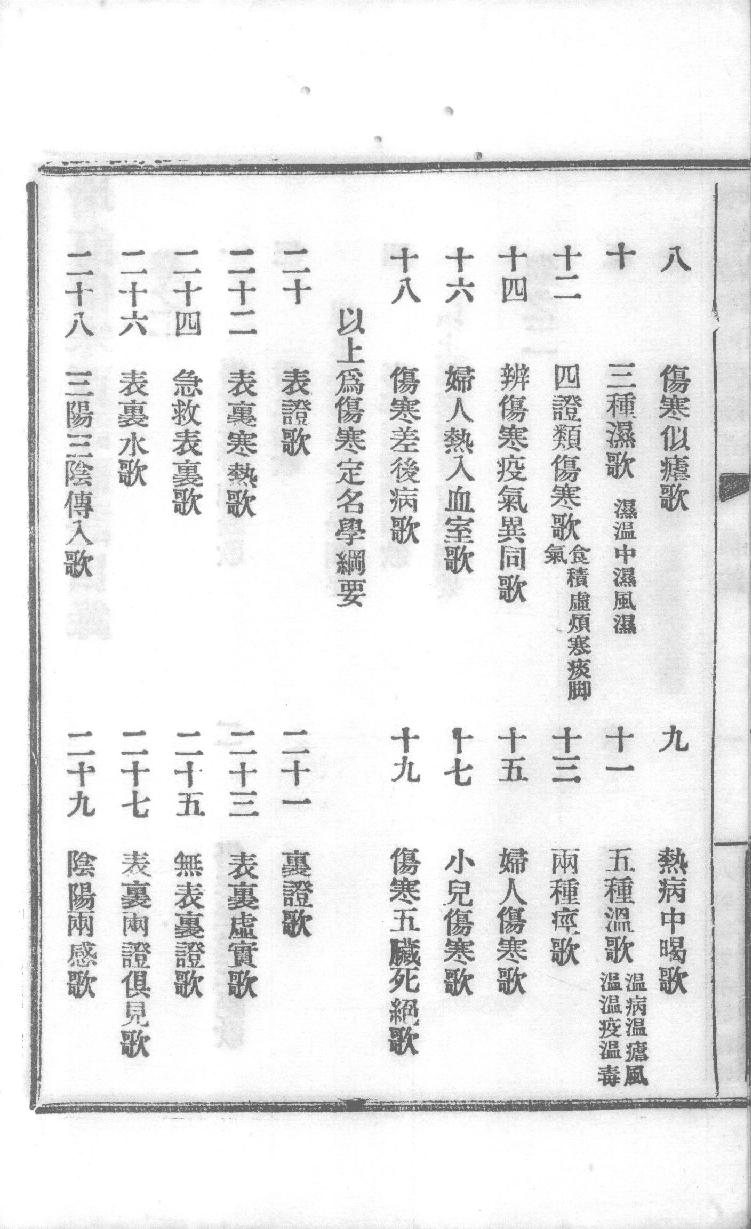 八　傷寒似瘧歌　九　熱病中暍歌
十　三種濕歌　濕溫中濕風濕　十一　五種溫歌　溫病溫瘧風溫溫疫溫毒
十二　四證類傷寒歌　食積虛煩寒痰脚氣　十三　兩種痙歌
十四　辨傷寒疫氣異同歌　十五　婦人傷寒歌
十六　婦人熱入血室歌　十七　小兒傷寒歌
十八　傷寒差後病歌　十九　傷寒五臟死絕歌
以上爲傷寒定名學綱要
二十　表證歌　二十一　裏證歌
二十二　表裏寒熱歌　二十三　表裏虛實歌
二十四　急救表裏歌　二十五　無表裏證歌
二十六　表裏水歌　二十七　表裏兩證俱見歌
二十八　三陽三陰傳入歌　二十九　陰陽兩感歌